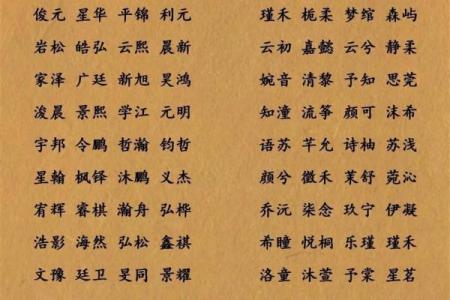 俊元 星华 平锦 利元 瑾禾 栀柔 梦绾 森屿
岩松 皓弘 云熙 晨新 云初 嘉懿 云兮 静柔
家泽 广廷 新旭 昊鸿 婉音 清黎 予知 思莞
浚晨 景熙 学江 元明 知潼 流筝 颜可 沫希
宇邦 令鹏 哲瀚 钧哲 语苏 芊允 诗柚 苏浅
星翰 枫铎 沐鹏 义杰 颜兮 徽禾 茉舒 菀沁
宥辉 睿棋 瀚舟 弘桦 乔沅 柒念 玖宁 伊凝
浩影 海然 弘松 鑫祺 希瞳 悦桐 乐瑾 瑾禾
文豫 廷卫 旻同 景耀 洛童 沐萱 予棠 星茗